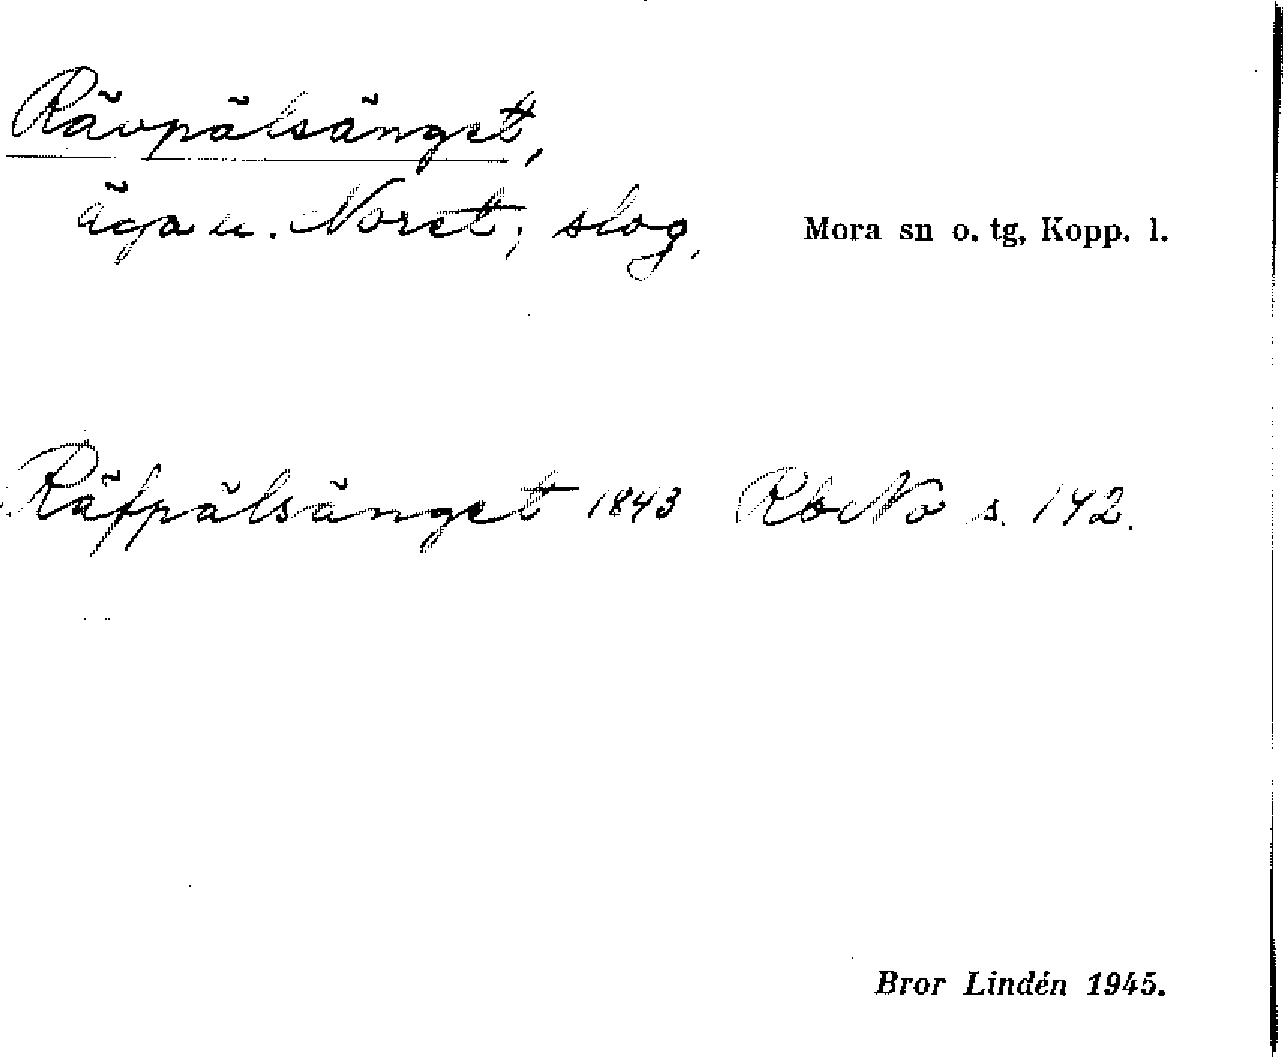 Rävpälsänget,
äga u. Noret; slog.
Mora sn o. tg, Kopp. l.
Räfpälsänget 1843 RbNo s. 142.
Bror Lindén 1945.